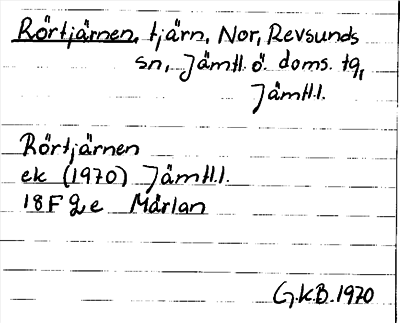 Rörtjärnen, tjärn, Nor, Revsunds
sn, Jämtl. ö. doms. tg,
Jämtl.
Rörtjärnen
ek (1970) Jämtl.
18F 2 e Mårlan
G.K.B. 1970